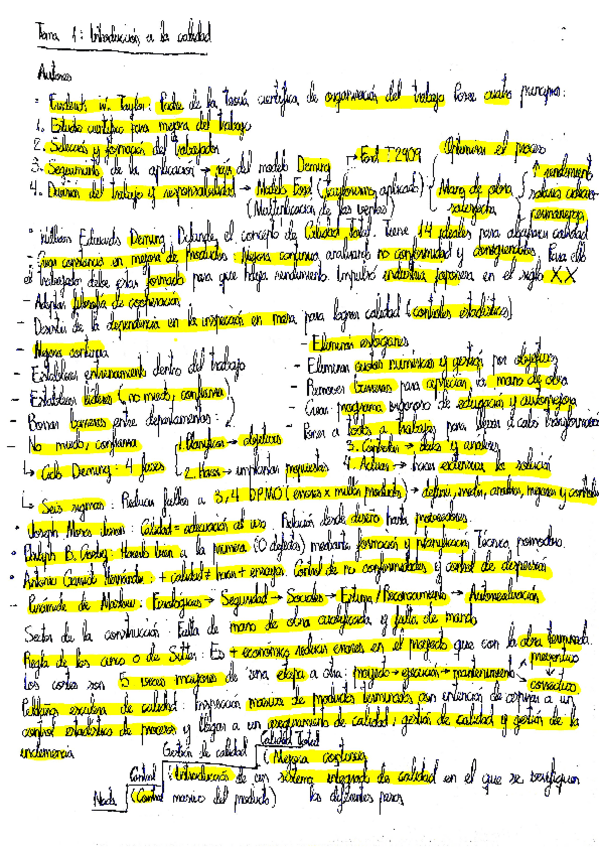 Tema 1: Introducción a la calidad
Autores
- Frederick W. Taylor: Padre de la Teoría científica de organización del trabajo. Posee cuatro principios:
1. Estudio científico para mejora del trabajo
2. Selección y formación del trabajador
3. Seguimiento de la aplicación → del modelo Deming → Ford T 1909 Optimizar el proceso
4. División del trabajo y responsabilidad → Modelo Ford (taylorismo aplicado) { Mano de obra satisfecha { ↑ rendimiento
(Multiplicación de las ventas) salarios
- William Edwards Deming: Defiende el concepto de Calidad total. Tiene 14 ideales para alcanzar calidad
- Crear constancia en mejora de Productos: Mejora continua analizando no conformidad y Para ello
el trabajador debe estar formado para que haya rendimiento. Impulsó industria japonesa en el siglo XX
- Adoptar filosofía de cooperación
- Desistir de la dependencia en la inspección en masa para lograr calidad (controles estadísticos)
- Mejora continua
- Establecer entrenamiento dentro del trabajo
- Establecer líderes (no miedo, confianza)
- Borrar barreras entre departamentos:
- No miedo, confianza
- Eliminar eslóganes
- Eliminar cuotas numéricas y gestión por objetivos
- Remover barreras para apreciar la mano de obra
- Crear programa riguroso de educación y automejora
- Poner a todos a trabajar para llevar a cabo transformación
↳ Ciclo Deming: 4 fases { 1. Planificar → objetivos
2. Hacer → implantar propuestas
3. Controlar → datos y análisis
4. Actuar → hacer extensiva la solución
↳ Seis sigmas: Reducir fallos a 3,4 DPMO (errores x millón productos) → definir, medir, analizar, mejorar y controlar
• Joseph Moses Juran: Calidad = adecuación al uso. Relación desde diseño hasta proveedores.
• Philiph B. Crosby: Hacerlo bien a la primera (0 defectos) mediante formación y planificación
• Antonio Garrido Hernández: + calidad ≠ hacer + ensayos. Control de no conformidades y control de dispersión
- Pirámide de Maslow: Fisiológicas → Seguridad → Sociales → Estima / Reconocimiento → Autorrealización
Sector de la construcción: Falta de mano de obra cualificada y falta de mando
Regla de los cinco o de Sitter: Es + económico reducir errores en el proyecto que con la obra terminada.
Los costes son 5 veces mayores de una etapa a otra: proyecto → ejecución → mantenimiento preventivo correctivo
Peldaños escalera de calidad: Inspección masiva de productos terminados con intención de a un
control estadístico de procesos y llegar a un aseguramiento de calidad, gestión de calidad y gestión de la
excelencia
Calidad Total
Gestión de calidad (Mejora continua)
Control (Introducción de un sistema integrado de calidad en el que se verifiquen
Nada (Control masivo del producto) los diferentes pasos